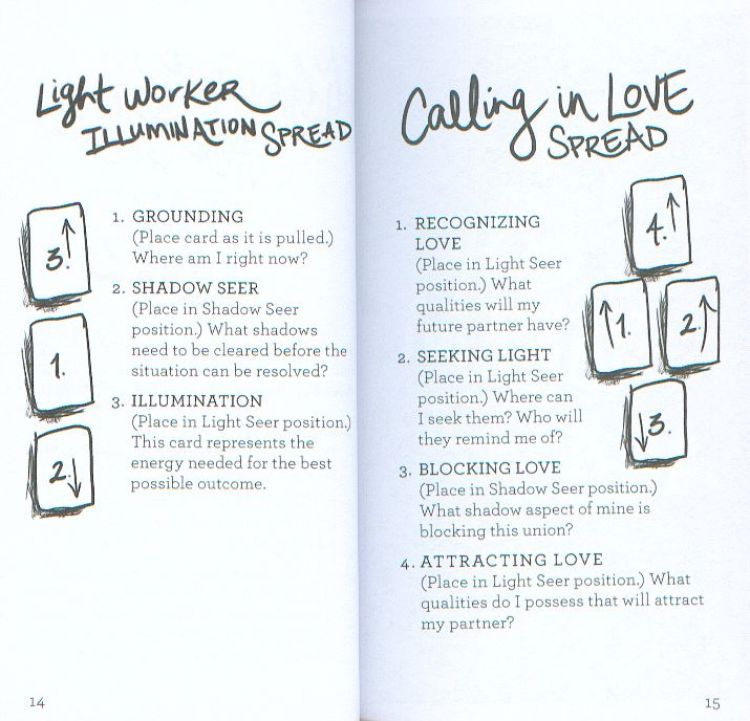 Light Worker
Illumination Spread
3.
1.
2.
1. GROUNDING
(Place card as it is pulled.)
Where am I right now?
2. SHADOW SEER
(Place in Shadow Seer
position.) What shadows
need to be cleared before the
situation can be resolved?
3. ILLUMINATION
(Place in Light Seer position.)
This card represents the
energy needed for the best
possible outcome.
14
Calling in Love
Spread
1. RECOGNIZING
LOVE
(Place in Light Seer
position.) What
qualities will my
future partner have?
2. SEEKING LIGHT
(Place in Light Seer
position.) Where can
I seek them? Who will
they remind me of?
3. BLOCKING LOVE
(Place in Shadow Seer position.)
What shadow aspect of mine is
blocking this union?
4. ATTRACTING LOVE
(Place in Light Seer position.) What
qualities do I possess that will attract
my partner?
4.
1. 2.
3.
15